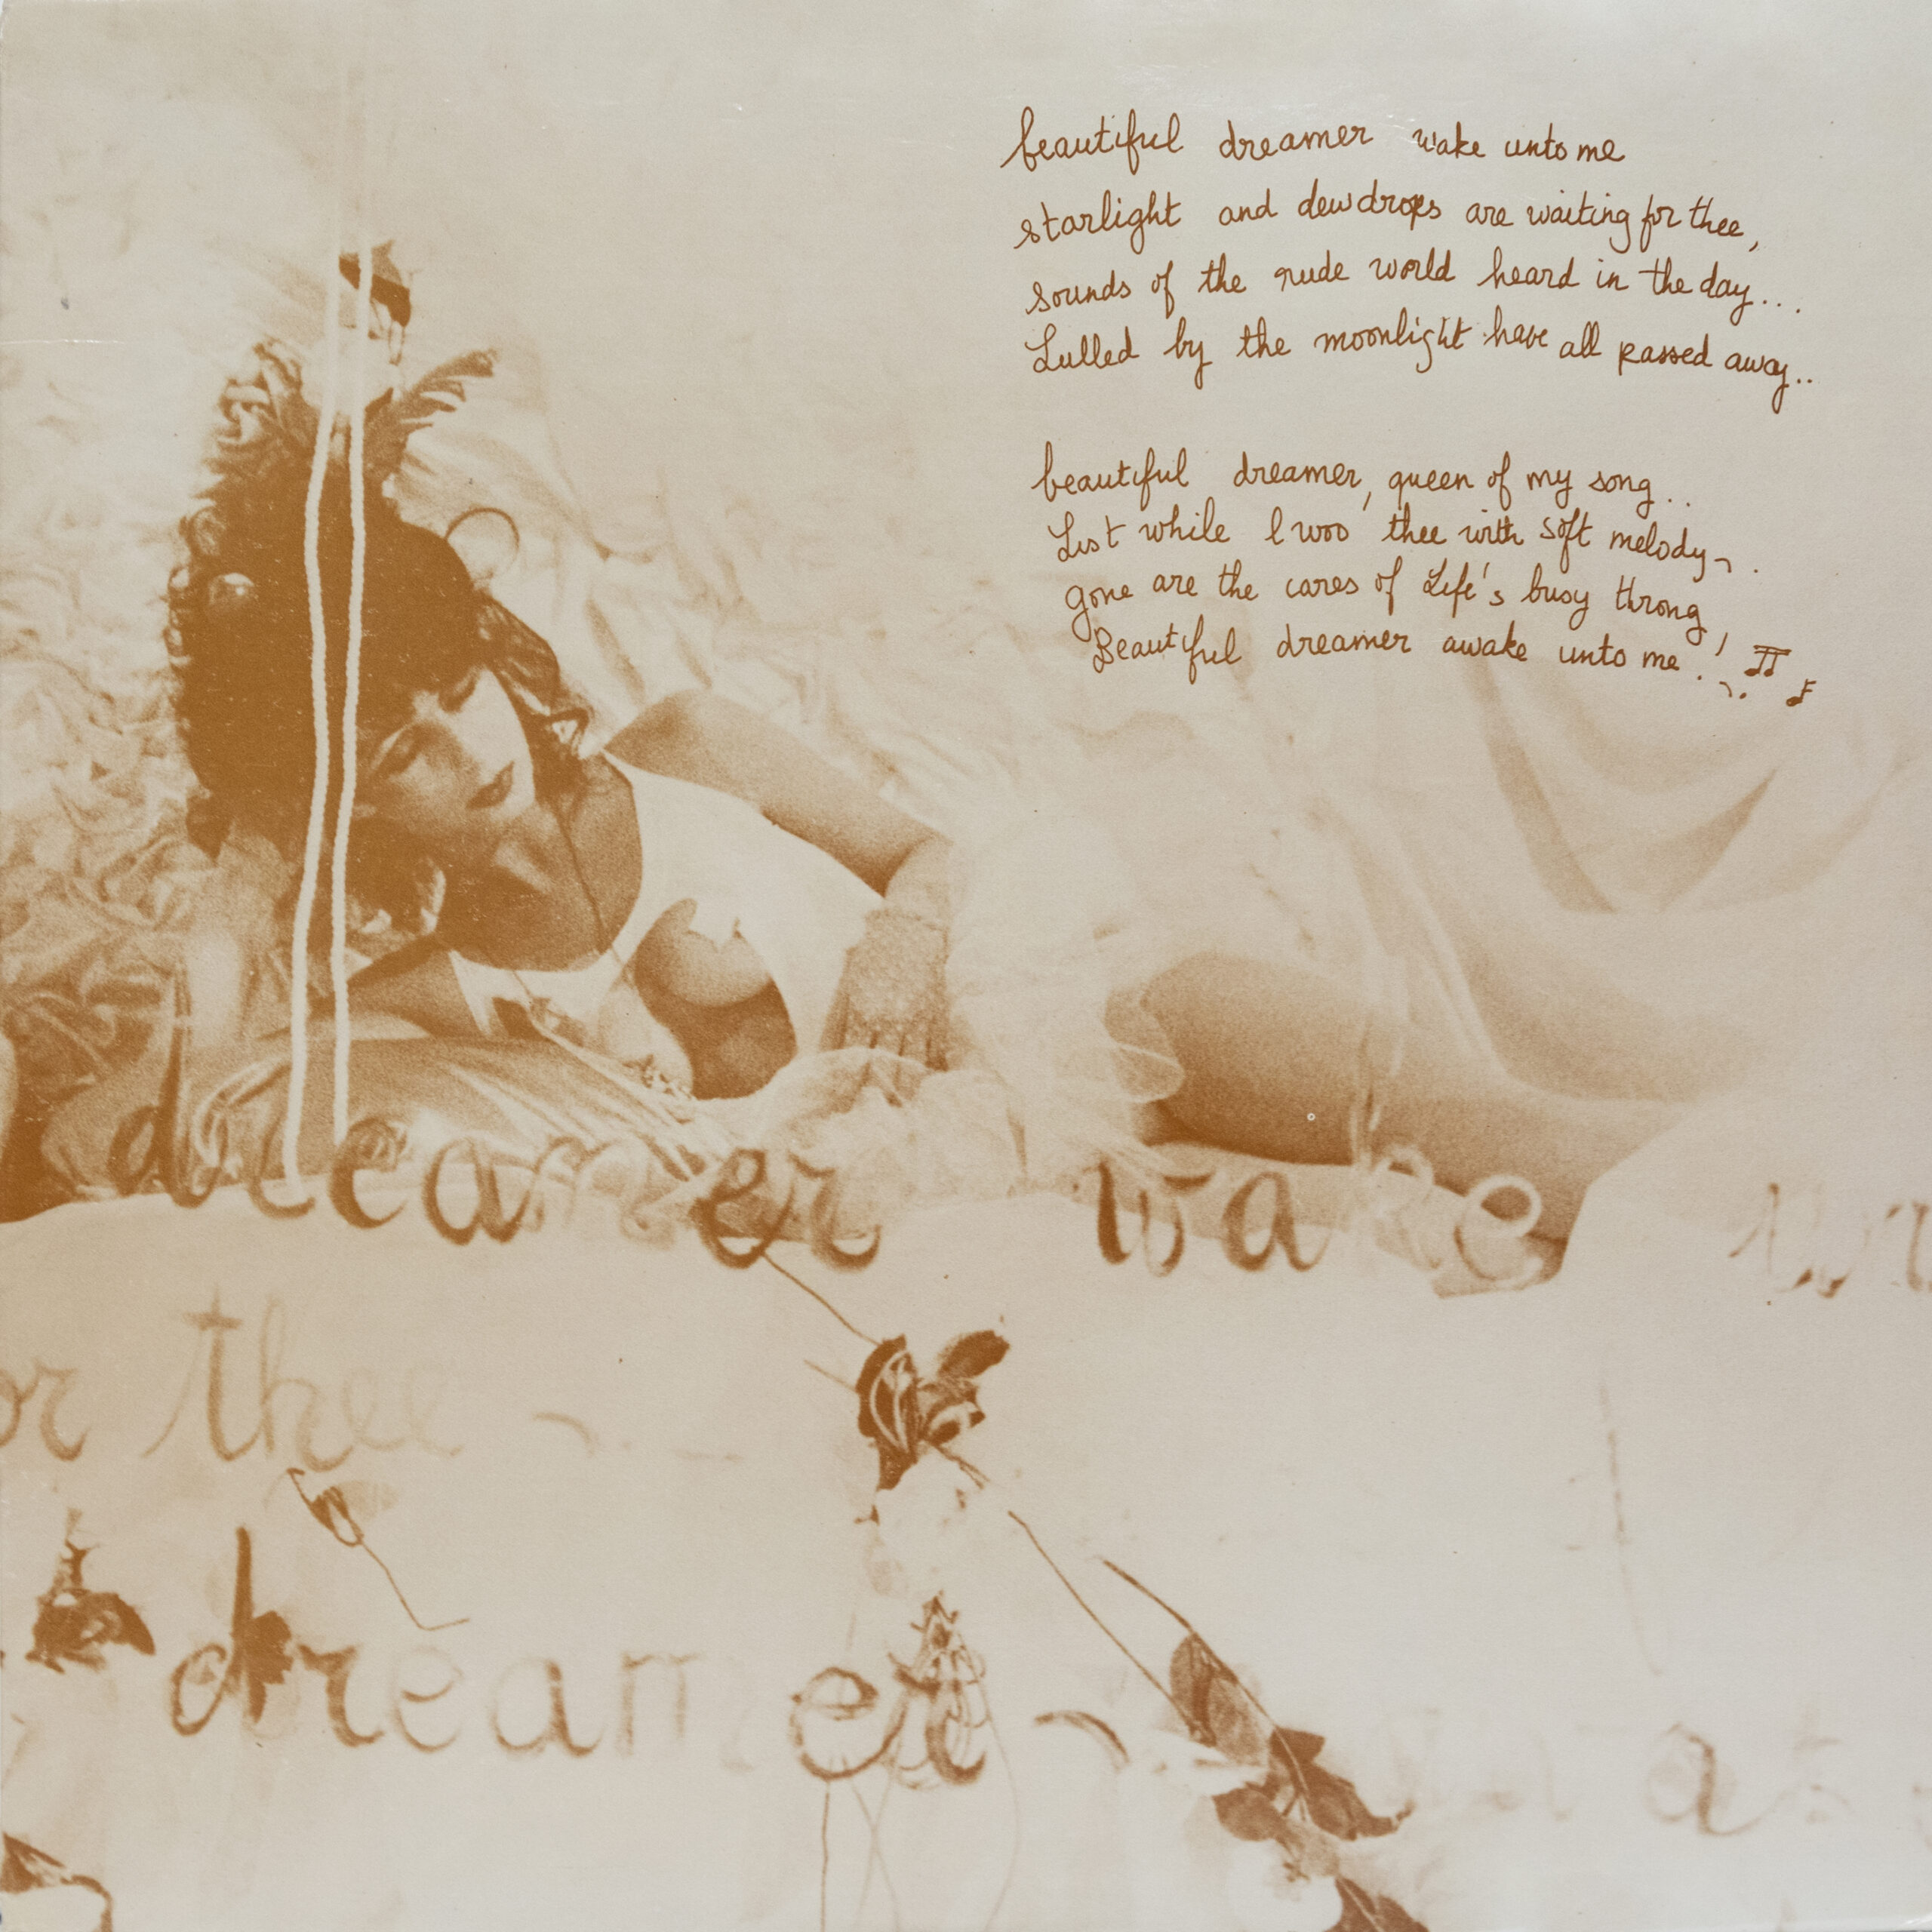 beautiful dreamer wake unto me
starlight and dewdrops are waiting for thee,
sounds of the rude world heard in the day...
Lulled by the moonlight have all passed away..
beautiful dreamer, queen of my song..
List while I woo thee with soft melody~.
gone are the cares of Life's busy throng,
Beautiful dreamer awake unto me!
dreamer wake un
or thee ~
dreamer ~